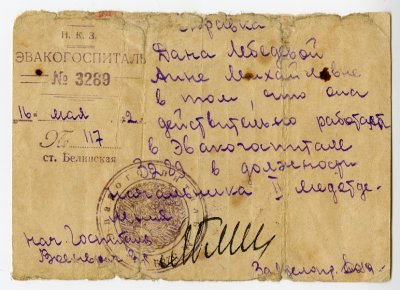 Н. К. З.
ЭВАКОГОСПИТАЛЬ
№ 3289
16 мая 2
№ 117
ст. Белинская
Справка
Дана Лебедевой
Анне Михайловне
в том, что она
действительно работает
в Эвакогоспитале
3289 в должности
начальника II медотде-
ления
нач. Госпиталя